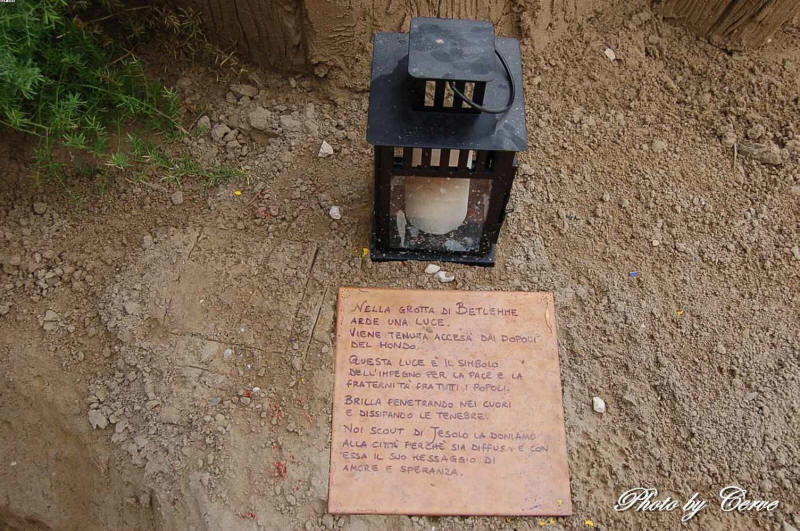 NELLA GROTTA DI BETLEMME
ARDE UNA LUCE.
VIENE TENUTA ACCESA DAI POPOLI
DEL MONDO.
QUESTA LUCE È IL SIMBOLO
DELL'IMPEGNO PER LA PACE E LA
FRATERNITÀ FRA TUTTI I POPOLI.
BRILLA PENETRANDO NEI CUORI
E DISSIPANDO LE TENEBRE.
NOI SCOUT DI JESOLO LA DONIAMO
ALLA CITTÀ PERCHÈ SIA DIFFUSA E CON
ESSA IL SUO MESSAGGIO DI
AMORE E SPERANZA.
Photo by Cerve